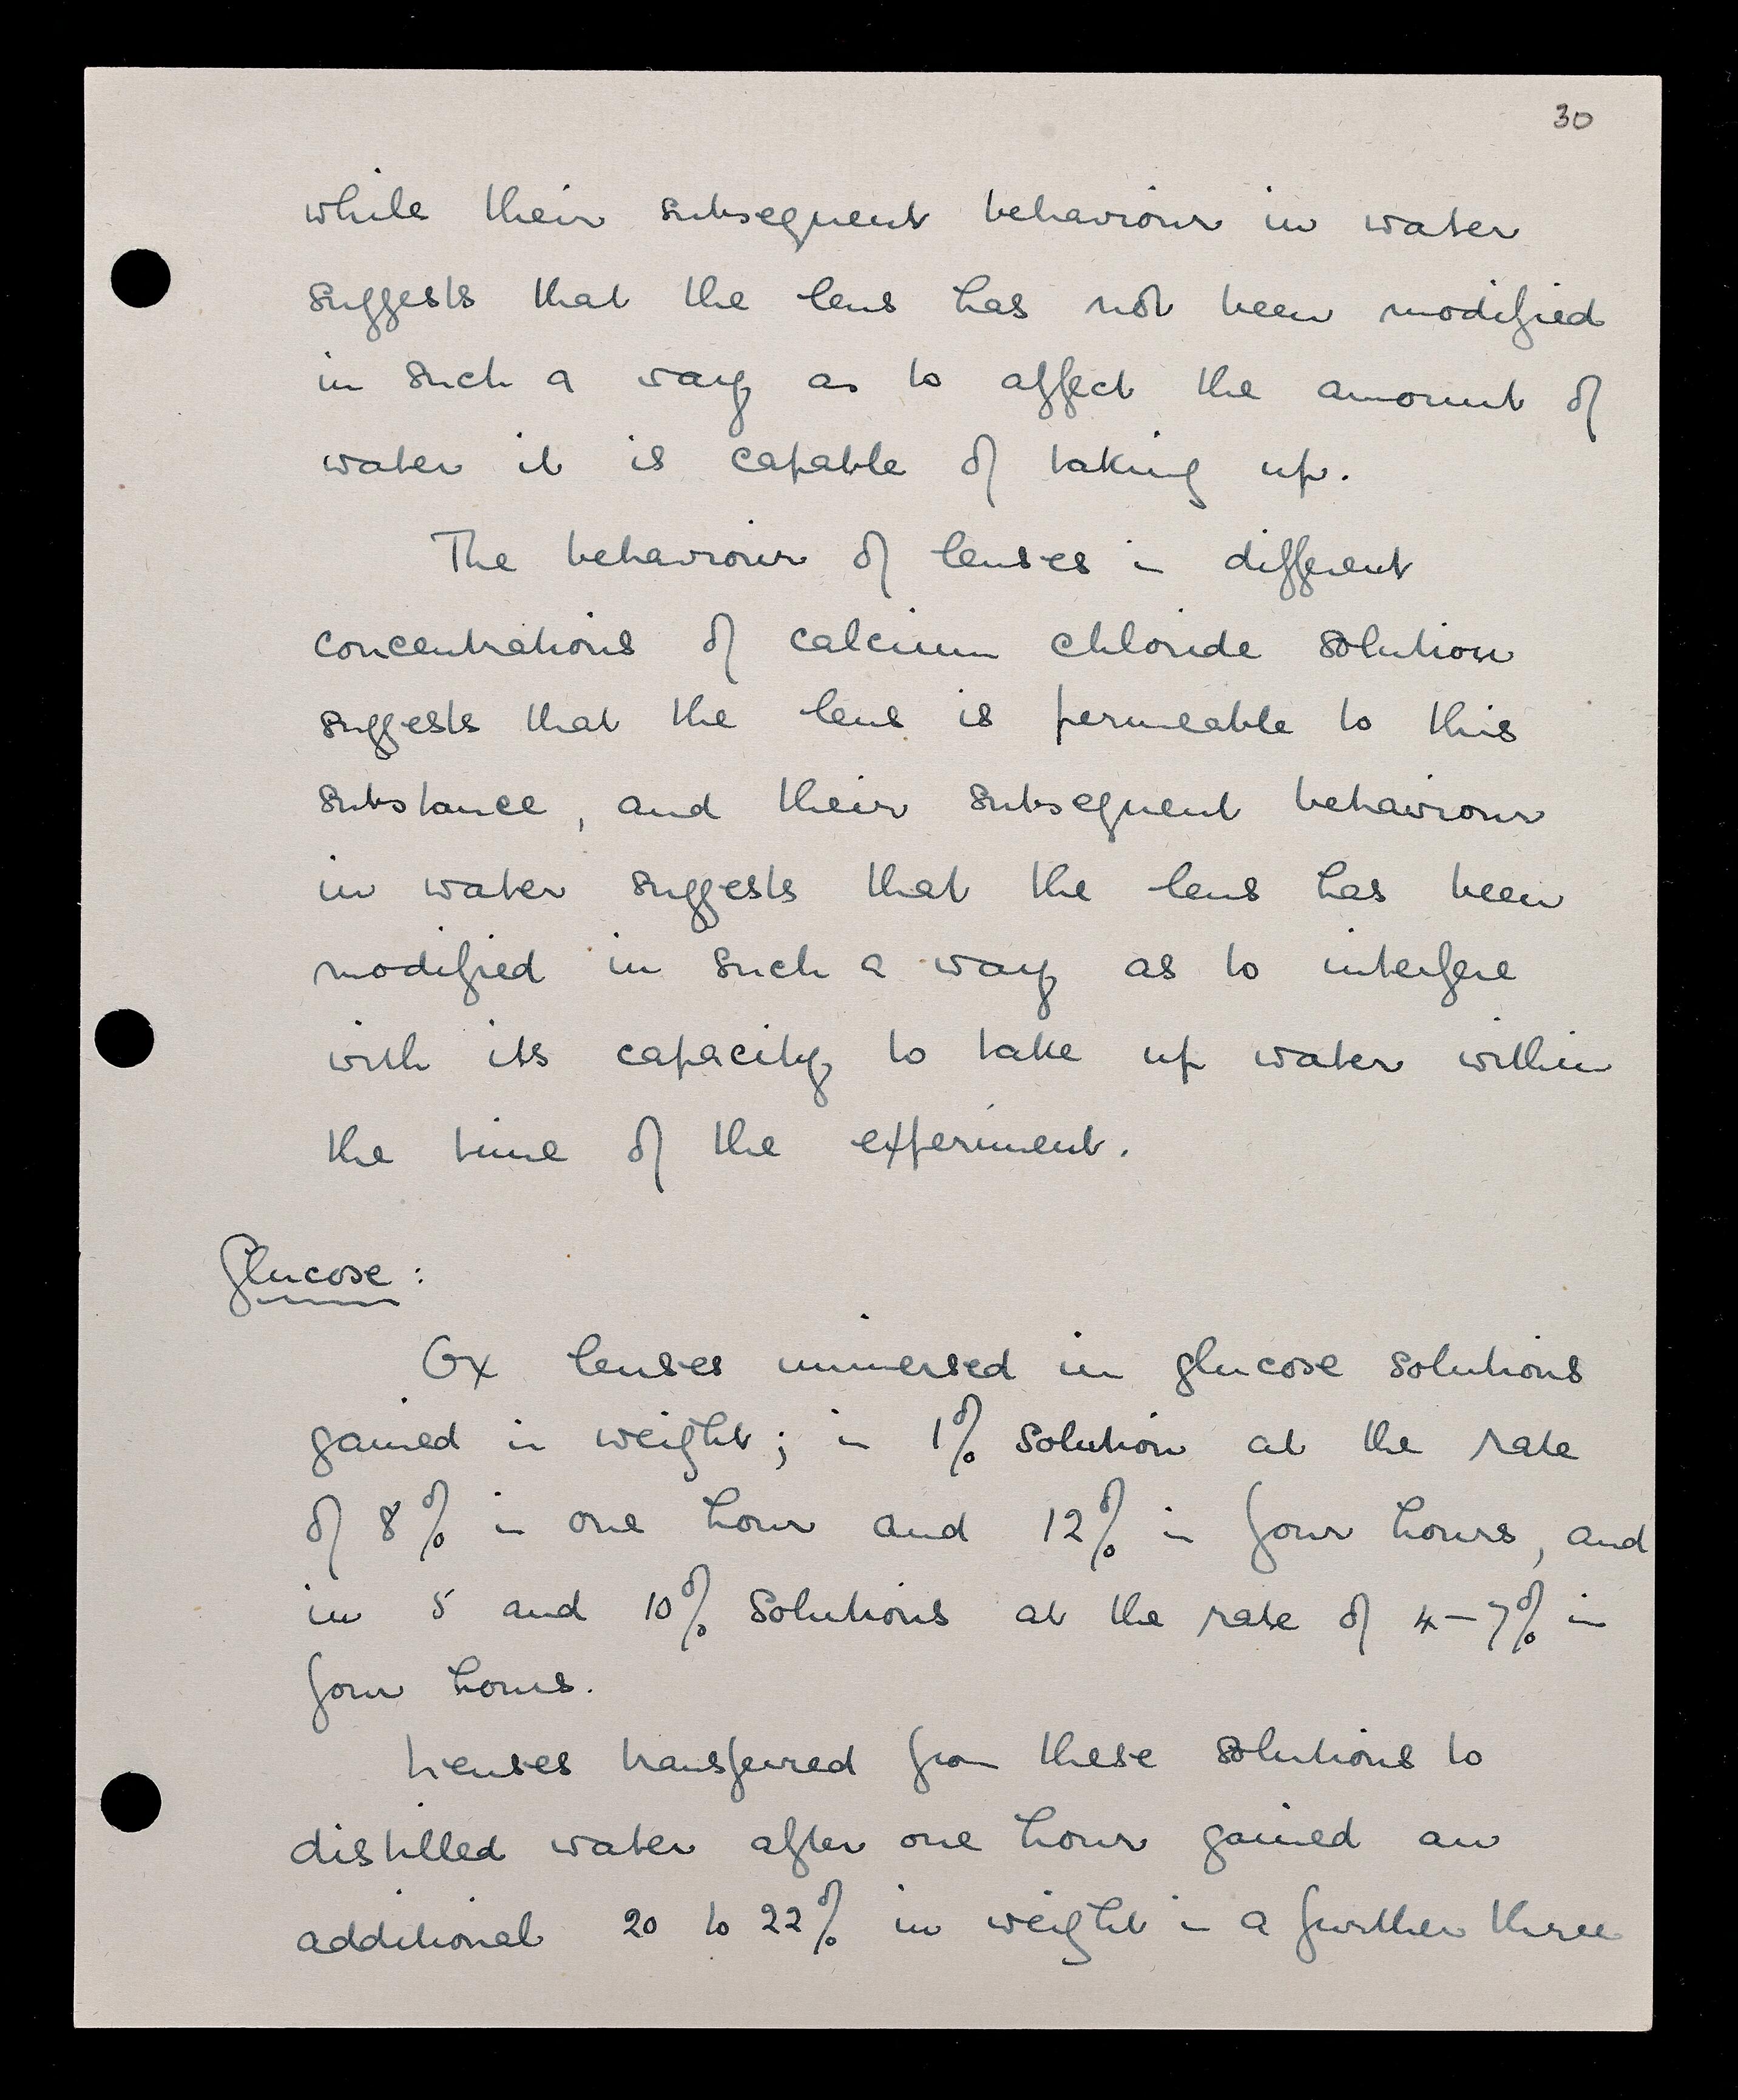 30
while their subsequent behaviour in water
suggests that the lens has not been modified
in such a way as to affect the amount of
water it is capable of taking up.
The behaviour of lenses in different
concentrations of calcium chloride solution
suggests that the lens is permeable to this
substance, and their subsequent behaviour
in water suggests that the lens has been
modified in such a way as to interfere
with its capacity to take up water within
the time of the experiment.
Glucose:
Ox lenses immersed in glucose solutions
gained in weight; in 1% solution at the rate
of 8% in one hour and 12% in four hours, and
in 5 and 10% solutions at the rate of 4–7% in
four hours.
Lenses transferred from these solutions to
distilled water after one hour gained an
additional 20 to 22% in weight in a further three